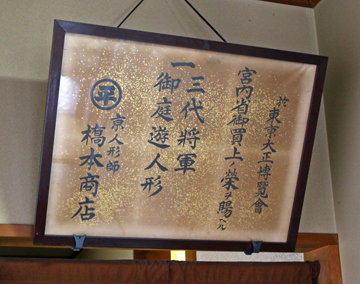 於東京大正博覧會
宮内省御買上ノ栄ヲ賜ハル
一三代將軍
御庭遊人形
平
京人形師
橋本商店